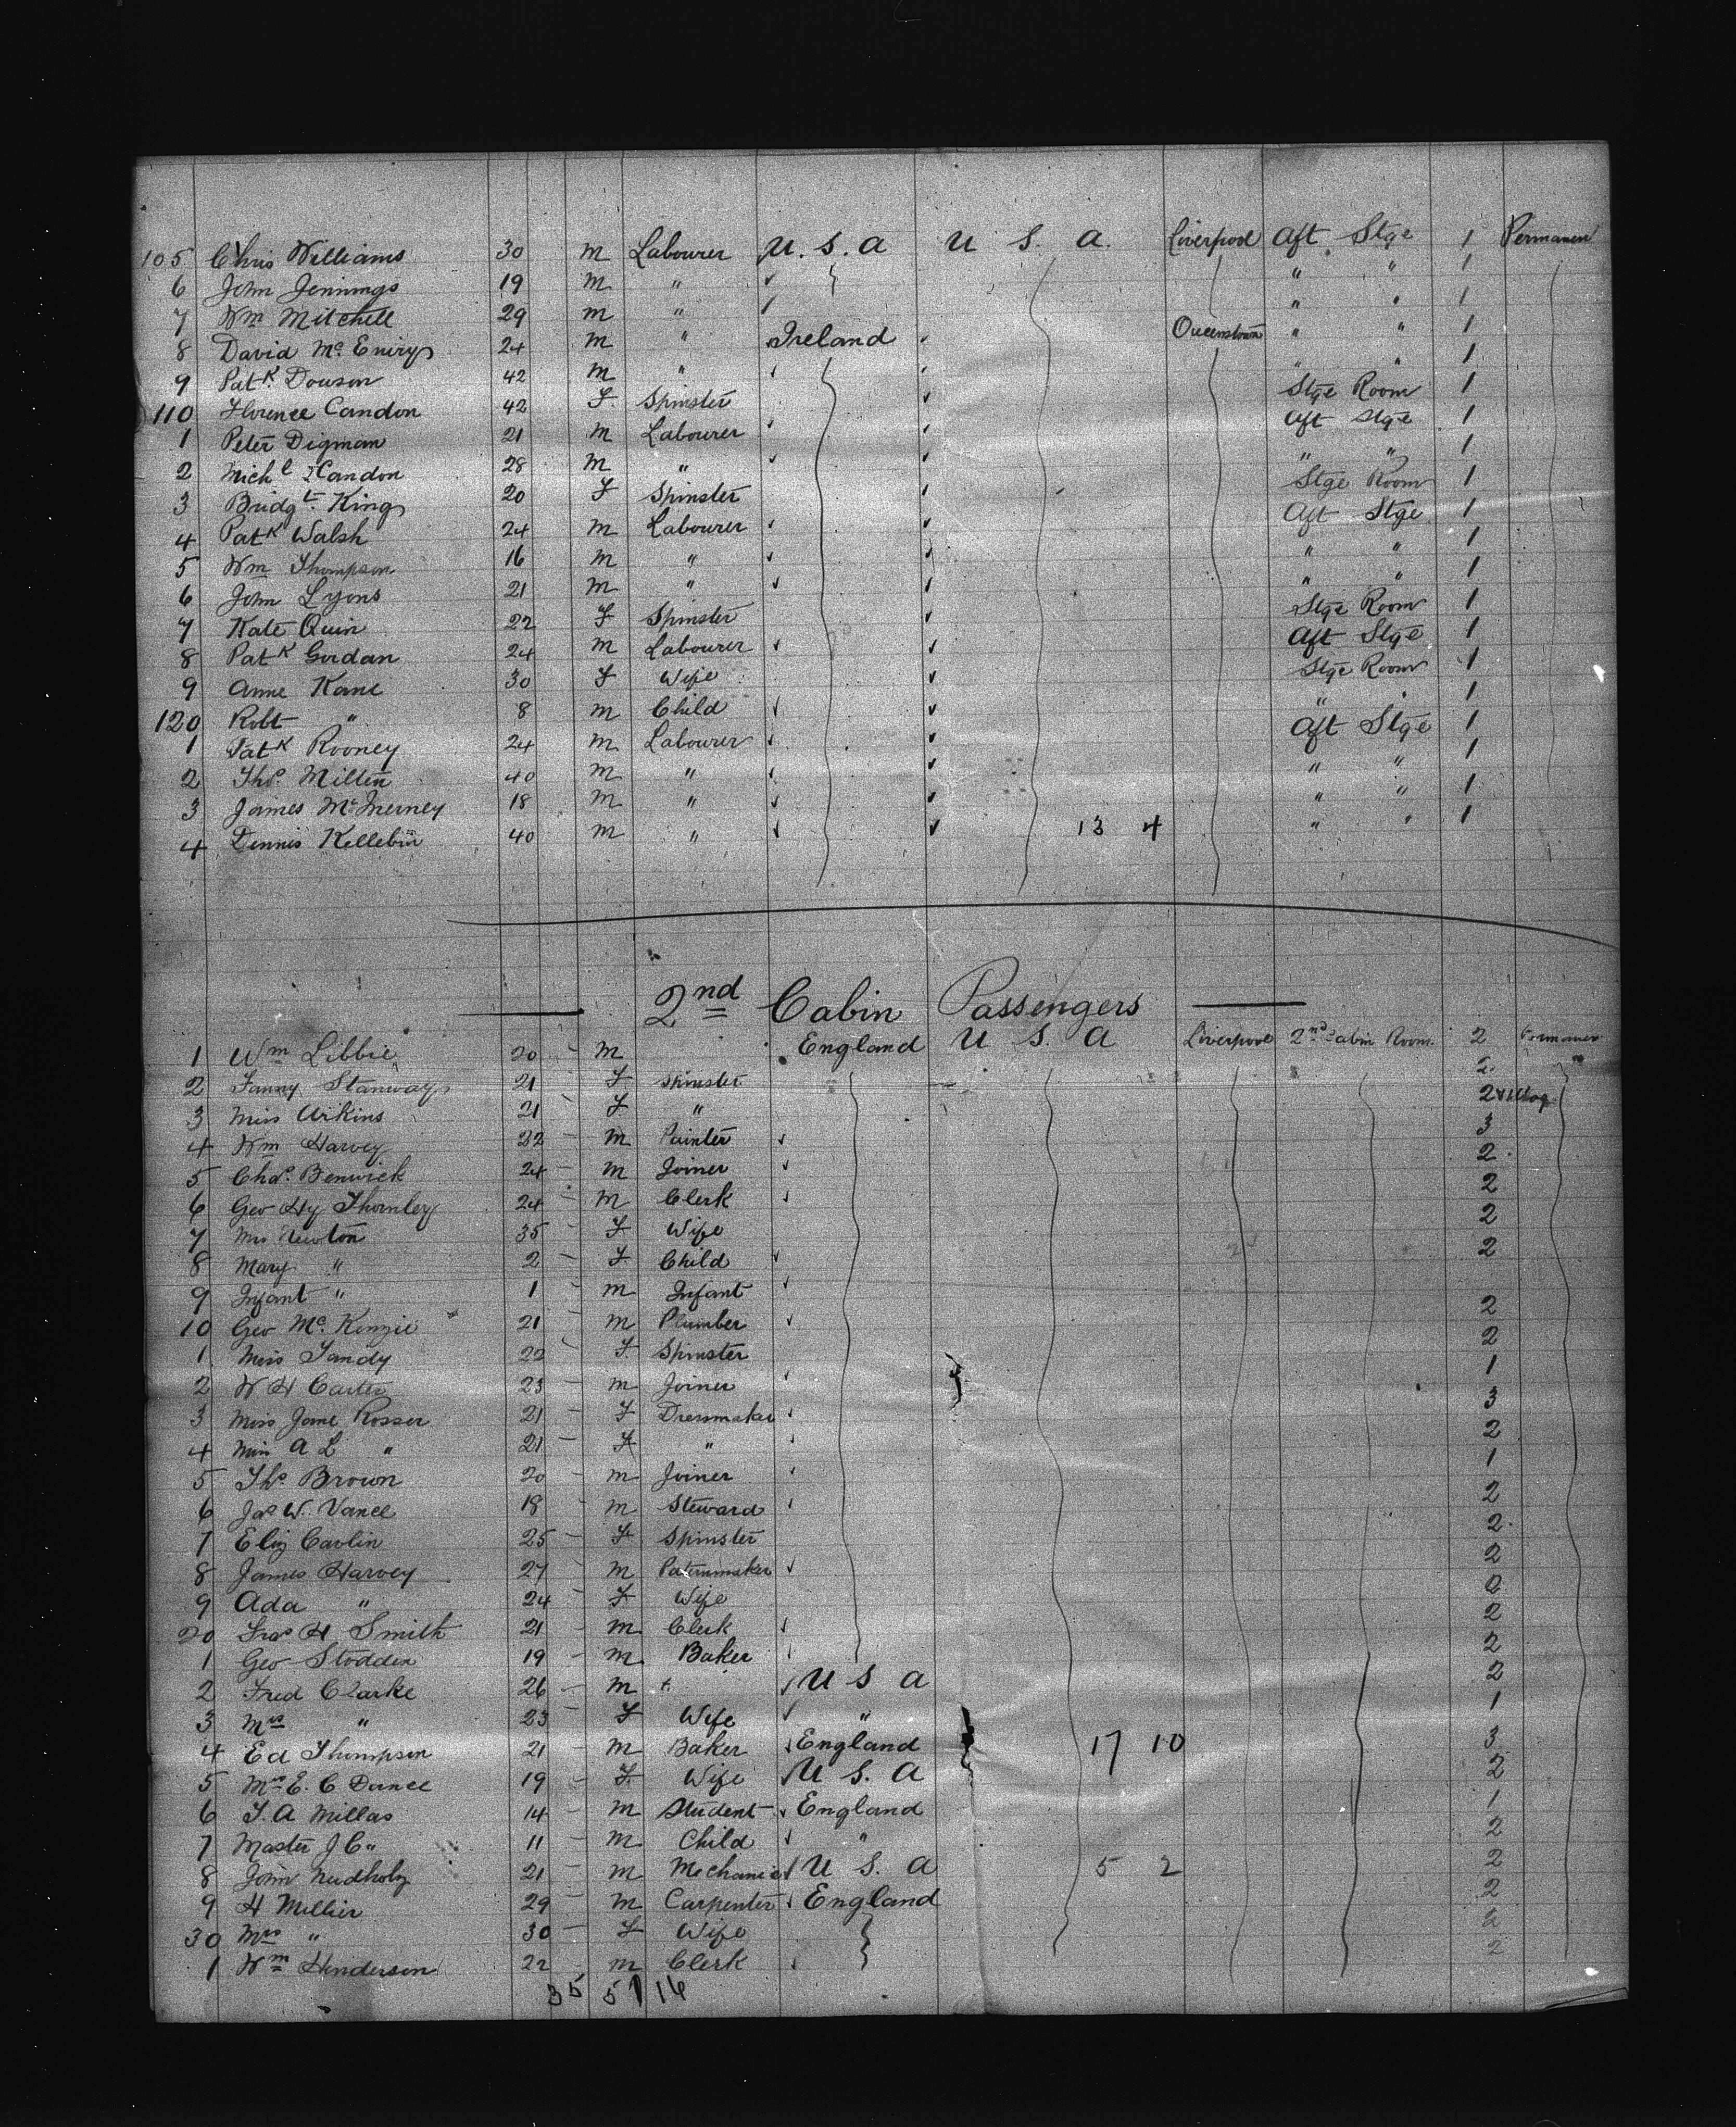 105 Chris Williams 30 m Labourer U.S.A U S. A. Liverpool Aft Stge 1 Permanen
6 John Jennings 19 m " " " 1
7 Wm Mitchell 29 m " " " 1
8 David Mc Eniry 24 m " Ireland Queenstown " " 1
9 Patk Dowson 42 m " " " 1
110 Florence Candon 42 F Spinster Stge Room 1
1 Peter Digman 21 m Labourer Aft Stge 1
2 Michl Candon 28 m " " " 1
3 Bridgt King 20 F Spinster Stge Room 1
4 Patk Walsh 24 m Labourer Aft Stge 1
5 Wm Thompson 16 m " " " 1
6 John Lyons 21 m " " " 1
7 Kate Quin 22 F Spinster Stge Room 1
8 Patk Gordan 24 m Labourer Aft Stge 1
9 Anne Kane 30 F Wife Stge Room 1
120 Robt " 8 m Child " " 1
1 Patk Rooney 24 m Labourer Aft Stge 1
2 Thos Milten 40 m " " " 1
3 James McInerney 18 m " " " 1
4 Dennis 40 m " 13 4 " " 1
2nd Cabin Passengers
1 Wm Libbie 20 - m England U S. A Liverpool 2nd Cabin Room 2
2 Fanny Stanway 21 - F Spinster 2
3 Miss Arkins 21 - F " 2
4 Wm Harvey 32 - m Painter 3
5 Chas. Benwick 24 - m Joiner 2
6 Geo Hy Thornley 24 - m Clerk 2
7 Mrs Newton 35 - F Wife 2
8 Mary " 2 - F Child 2
9 Infant " 1 - m Infant
10 Geo Mc. Kenzie 21 - m Plumber 2
1 Miss Tandy 22 F Spinster 2
2 W H Carter 23 - m Joiner 1
3 Miss Jane Rosser 21 - F Dressmaker 3
4 Miss A L " 21 - F " 2
5 Thos Brown 20 - m Joiner 1
6 Jas W. Vance 18 - m Steward 2
7 Eliz Carlin 25 - F Spinster 2
8 James Harvey 27 - m Patternmaker 2
9 Ada " 24 - F Wife 2
20 Fras H Smith 21 - m Clerk 2
1 Geo Stodden 19 - m Baker 2
2 Fred Clarke 26 - m U S A 2
3 Mrs " 23 - F Wife " 1
4 Ed Thompson 21 - m Baker England 17 10 3
5 Mrs E. C Dance 19 - F Wife U S. A 2
6 T. A Millas 14 - m Student England 1
7 Master J C " 11 - m Child " 2
8 John 21 - m Mechanic U S. A 5 2 2
9 H Millier 29 - m Carpenter England 2
30 Mrs " 30 - F Wife 2
1 Wm Henderson 22 m Clerk 2
35 51 16